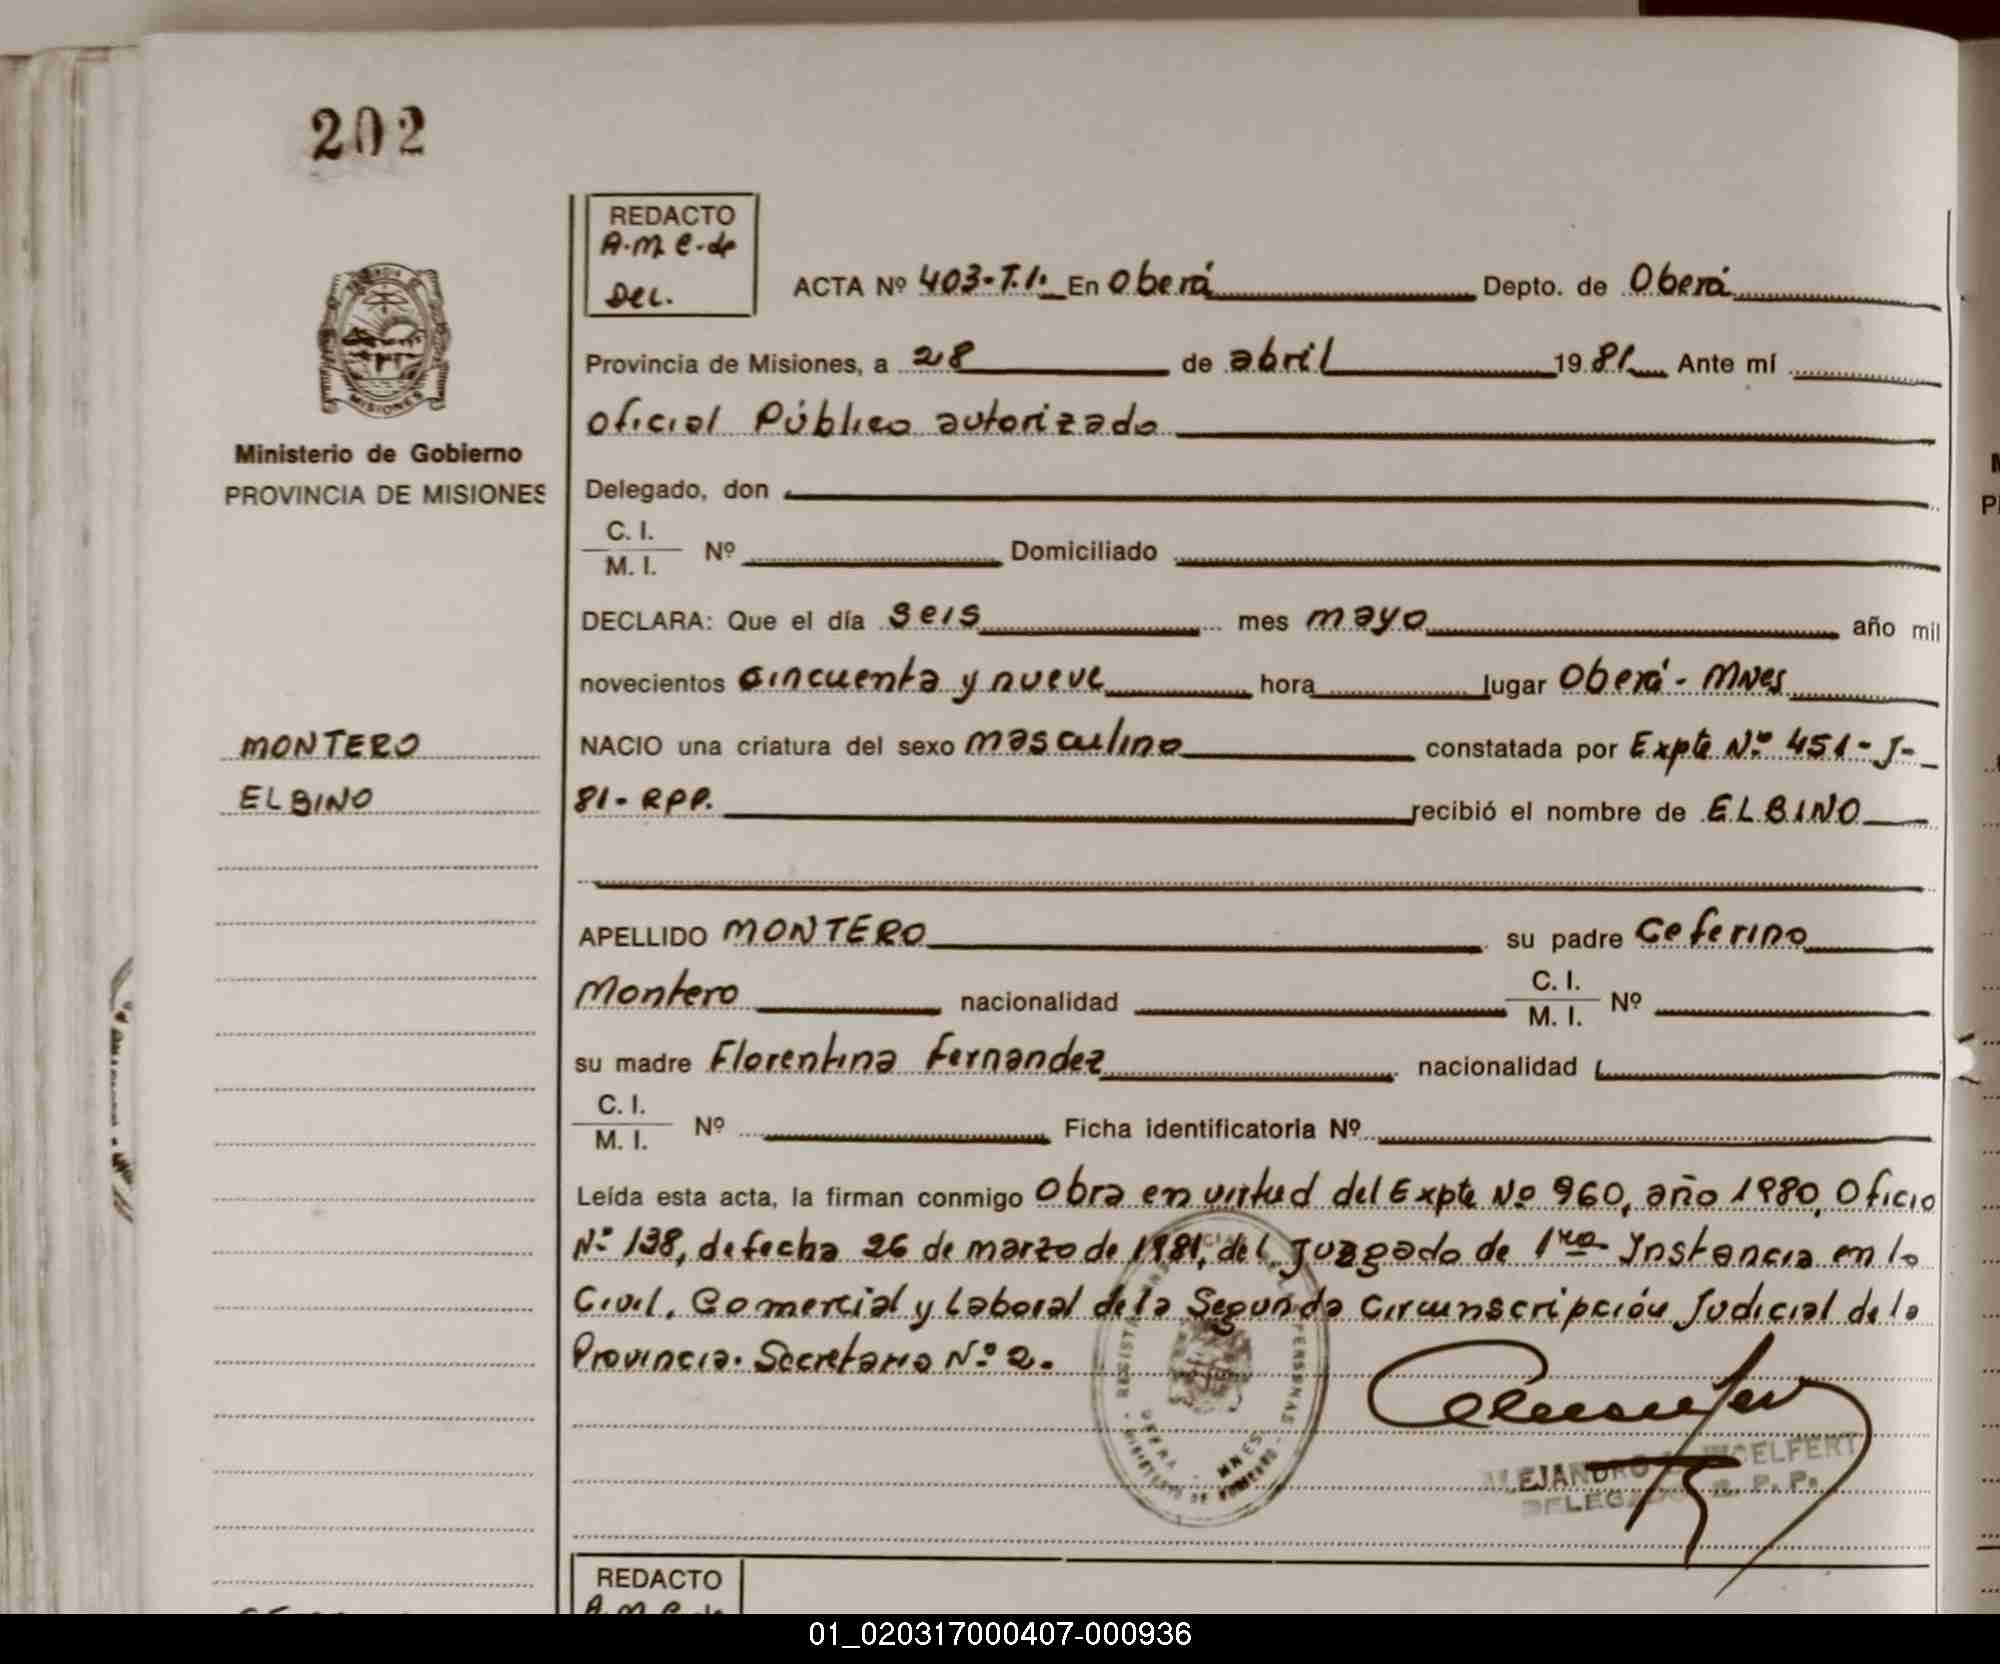 202
REDACTO
A.M.C. de
Del.
ACTA Nº 403-T.I. En Oberá Depto. de Oberá
Provincia de Misiones, a 28 de abril 1981 Ante mí
Oficial Público autorizado
MISIONES
Ministerio de Gobierno
PROVINCIA DE MISIONES
Delegado, don
C. I.
M. I. Nº Domiciliado
DECLARA: Que el día seis mes mayo año mil
novecientos cincuenta y nueve hora lugar Oberá - Mnes
MONTERO
ELBINO
NACIO una criatura del sexo masculino constatada por Expte Nº 451-J-
81-RPP. recibió el nombre de ELBINO
APELLIDO MONTERO su padre Ceferino
Montero nacionalidad C. I. M. I. Nº
su madre Florentina Fernandez nacionalidad
C. I.
M. I. Nº Ficha identificatoria Nº
Leída esta acta, la firman conmigo Obra en virtud del Expte Nº 960, año 1980, Oficio
Nº 138, de fecha 26 de marzo de 1981, del Juzgado de 1ra Instancia en lo
Civil, Comercial y Laboral de la Segunda Circunscripción Judicial de la
Provincia. Secretaria Nº 2.
MNES
ALEJANDRO
DELEGADO R. P. P.
REDACTO
A.M.C. de
01_020317000407-000936